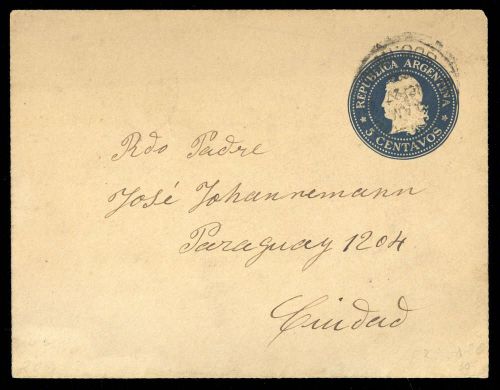 REPUBLICA ARGENTINA
5 CENTAVOS
Rdo Padre
José Johannemann
Paraguay 1204
Ciudad